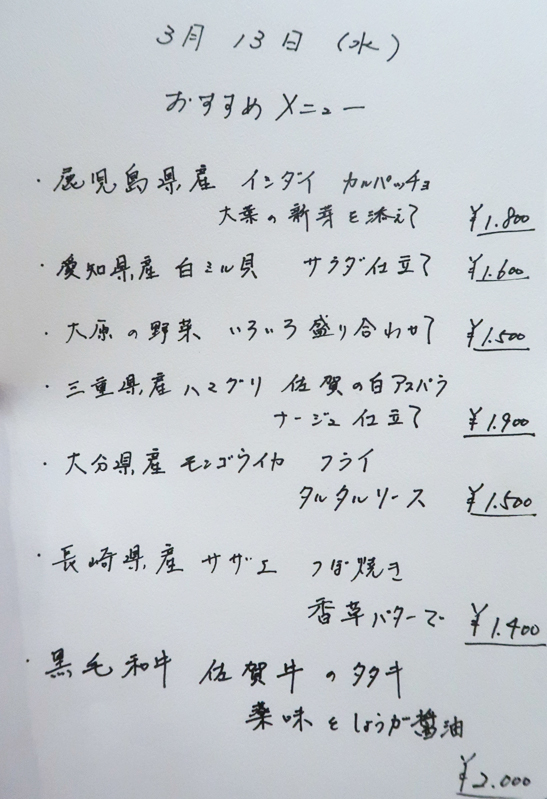 3月 13日 (水)
おすすめメニュー
・鹿児島県産 イシダイ カルパッチョ
大葉の新芽を添えて ¥1.800
・愛知県産 白ミル貝 サラダ仕立て ¥1.600
・大原の野菜 いろいろ盛り合わせて ¥1.500
・三重県産ハマグリ 佐賀の白アスパラ
ナージュ仕立て ¥1.900
・大分県産モンゴウイカ フライ
タルタルソース ¥1.500
・長崎県産 サザエ つぼ焼き
香草バターで ¥1.400
・黒毛和牛 佐賀牛のタタキ
薬味としょうが醤油
¥2.000